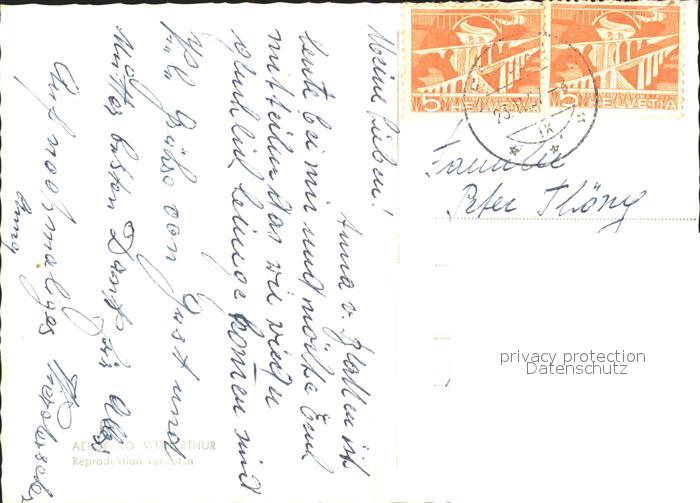 Meine Lieben!
Anna v. Blatten ist
heute bei mir und möchte Euch
mitteilen das wir wieder
glücklich heimgekommen sind
Grüsse von Gust und
Mutter besten Dank für Alles
Euch nochmaliges
Anny
5 HELVETIA
5 HELVETIA
23. IX
Familie
Peter Thöny
privacy protection
Datenschutz
AERO-FOTO WINTERTHUR
Reproduktion verboten